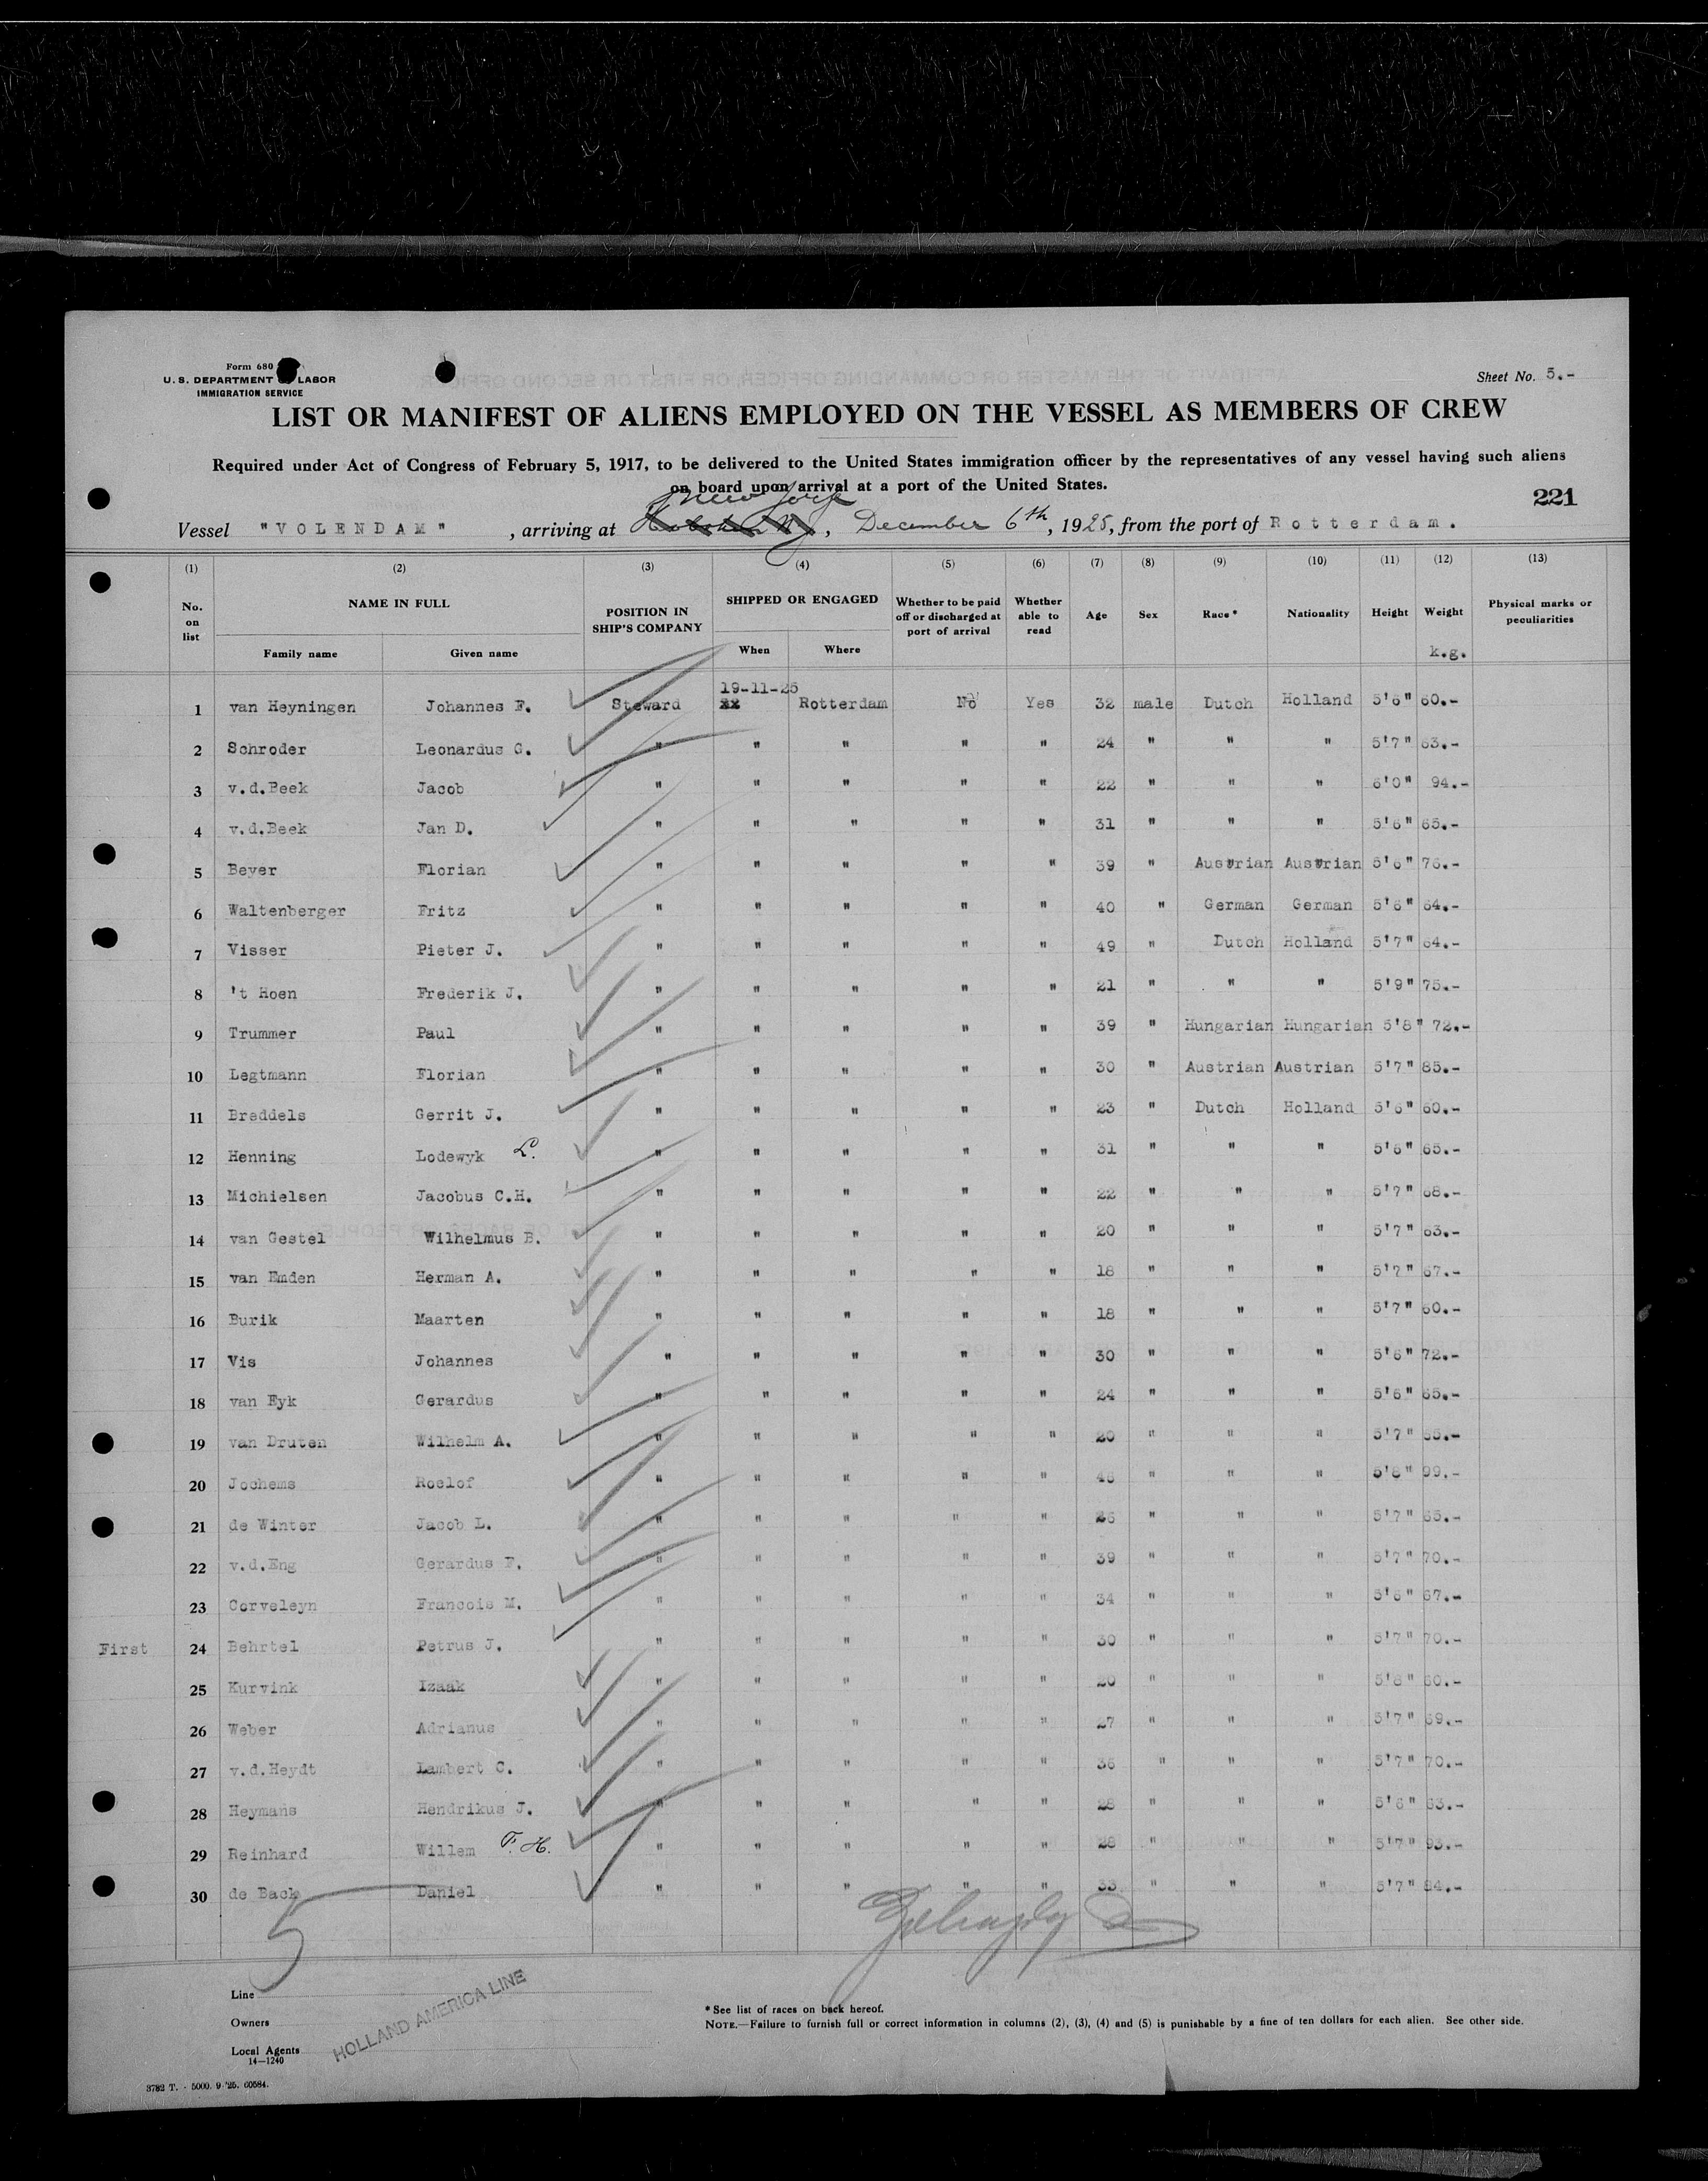 Form 680
U. S. DEPARTMENT OF LABOR
IMMIGRATION SERVICE
Sheet No. 5.-
LIST OR MANIFEST OF ALIENS EMPLOYED ON THE VESSEL AS MEMBERS OF CREW
Required under Act of Congress of February 5, 1917, to be delivered to the United States immigration officer by the representatives of any vessel having such aliens
on board upon arrival at a port of the United States.
221
New York
Vessel "VOLENDAM" , arriving at Hoboken NJ, December 6th, 1925, from the port of Rotterdam.
(1) (2) (3) (4) (5) (6) (7) (8) (9) (10) (11) (12) (13)
No. on list NAME IN FULL POSITION IN SHIP'S COMPANY SHIPPED OR ENGAGED Whether to be paid off or discharged at port of arrival Whether able to read Age Sex Race* Nationality Height Weight Physical marks or peculiarities
Family name Given name When Where k.g.
19-11-25
1 van Heyningen Johannes F. Steward xx Rotterdam No Yes 32 male Dutch Holland 5'6" 60.-
2 Schroder Leonardus G. " " " " " 24 " " " 5'7" 63.-
3 v.d.Beek Jacob " " " " " 22 " " " 6'0" 94.-
4 v.d.Beek Jan D. " " " " " 31 " " " 5'6" 65.-
5 Beyer Florian " " " " " 39 " Austrian Austrian 5'6" 76.-
6 Waltenberger Fritz " " " " " 40 " German German 5'6" 64.-
7 Visser Pieter J. " " " " " 49 " Dutch Holland 5'7" 64.-
8 't Hoen Frederik J. " " " " " 21 " " " 5'9" 75.-
9 Trummer Paul " " " " " 39 " Hungarian Hungarian 5'8" 72.-
10 Legtmann Florian " " " " " 30 " Austrian Austrian 5'7" 85.-
11 Breddels Gerrit J. " " " " " 23 " Dutch Holland 5'6" 60.-
12 Henning Lodewyk L. " " " " " 31 " " " 5'6" 65.-
13 Michielsen Jacobus C.H. " " " " " 22 " " " 5'7" 68.-
14 van Gestel Wilhelmus B. " " " " " 20 " " " 5'7" 63.-
15 van Emden Herman A. " " " " " 18 " " " 5'7" 67.-
16 Burik Maarten " " " " " 18 " " " 5'7" 60.-
17 Vis Johannes " " " " " 30 " " " 5'6" 72.-
18 van Eyk Gerardus " " " " " 24 " " " 5'6" 65.-
19 van Druten Wilhelm A. " " " " " 20 " " " 5'7"
20 Jochems Roelof " " " " " " " " 99.-
21 de Winter Jacob L. " " " " " 26 " " " 5'7" 65.-
22 v.d.Eng Gerardus F. " " " " " 39 " " " 5'7" 70.-
23 Corveleyn Francois M. " " " " " 34 " " " 5'6" 67.-
First 24 Behrtel Petrus J. " " " " " 30 " " " 5'7" 70.-
25 Kurvink Izaak " " " " " 20 " " " 60.-
26 Weber Adrianus " " " " " 27 " " " 5'7" 69.-
27 v.d.Heydt Lambert C. " " " " " 36 " " " 5'7" 70.-
28 Heymans Hendrikus J. " " " " " 28 " " " 5'6" 63.-
29 Reinhard Willem F.H. " " " " " 28 " " " 5'7" 93.-
30 de Back Daniel " " " " " 33 " " " 5'7" 84.-
5
Line
Owners
Local Agents
HOLLAND AMERICA LINE
14—1240
* See list of races on back hereof.
NOTE.—Failure to furnish full or correct information in columns (2), (3), (4) and (5) is punishable by a fine of ten dollars for each alien. See other side.
3782 T. - 5000. 9 '25. 60584.